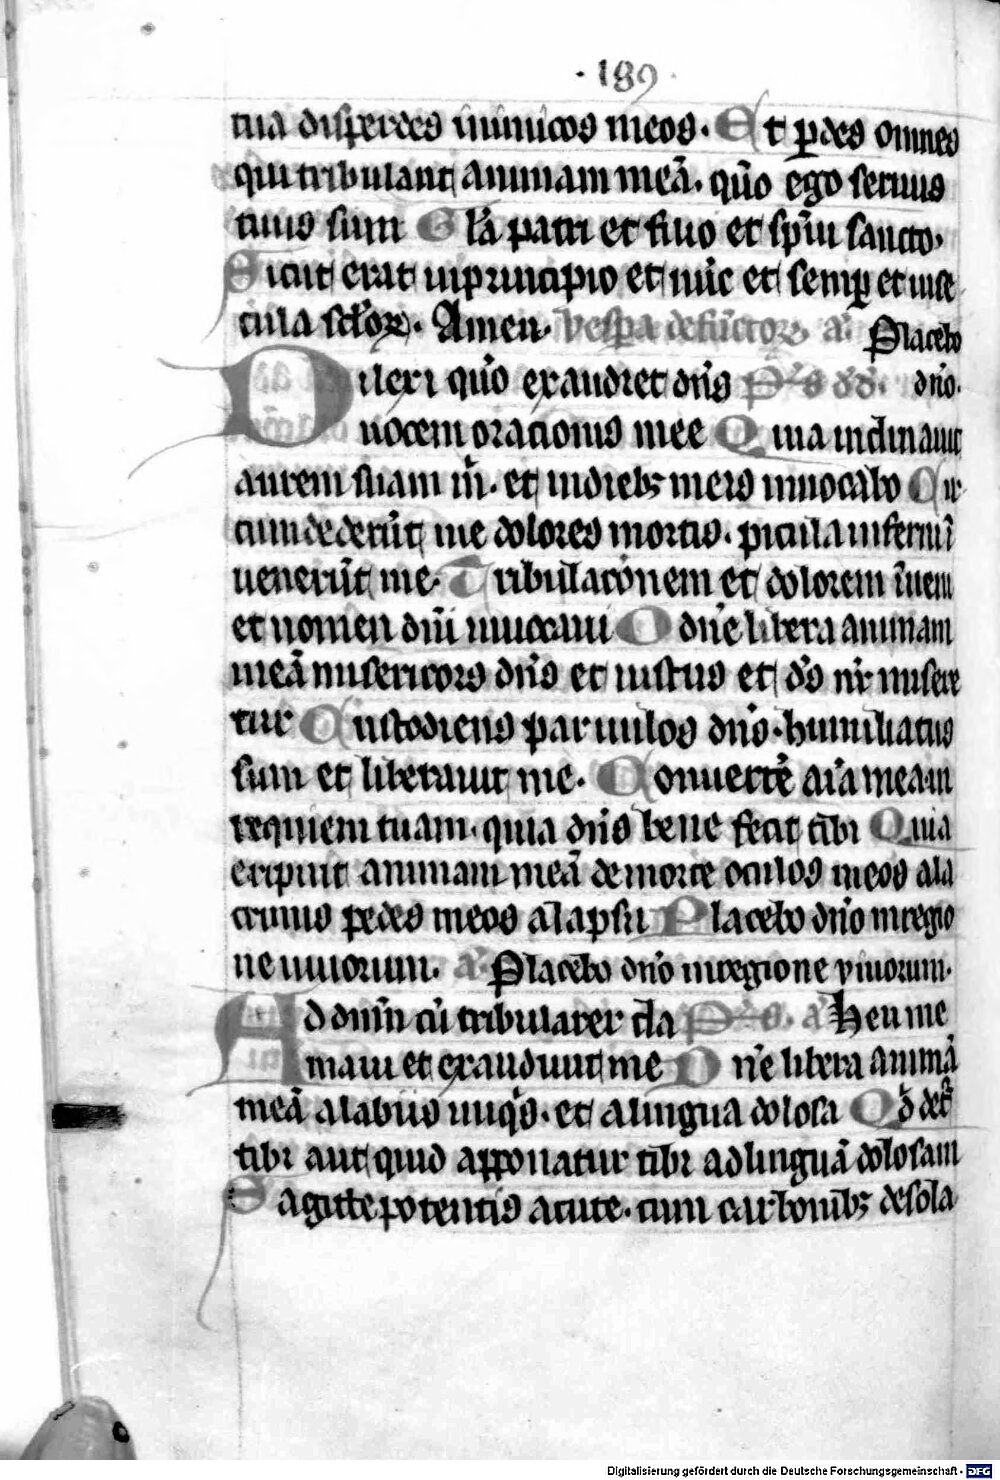 · 189 ·
tua disperdes inimicos meos. Et ꝑdes omnes
qui tribulant animam meā. qm̄o ego seruus
tuus sum Glā patri et filio et spūi sancto.
Sicut erat in principio et nūc et semꝑ et in se
cula sclōꝝ. Amen. Vesꝑa defūctoꝝ a. Placebo
Dilexi qm̄o exaudiet dn̄s Ps dd. dn̄o.
uocem orationis mee Quia inclinauit
aurem suam m̄. et in diebꝫ meis inuocabo Cir
cumdederūt me dolores mortis. pericula inferni
uenerūt me. Tribulacōnem et dolorem īueni
et nomen dn̄i inuocaui O dn̄e libera animam
meā misericors dn̄s et iustus et ds̄ nr̄ misere
tur Custodiens paruulos dn̄s. humiliatus
sum et liberauit me. Conuerte aīa mea in
requiem tuam. quia dn̄s bene fecit tibi Quia
eripuit animam meā de morte oculos meos a la
crimis pedes meos a lapsu Placebo dn̄o in regio
ne uiuorum. a. Placebo dn̄o in regione viuorum.
Ad dn̄m cū tribularer cla Ps. a Heu me
maui et exaudiuit me Dn̄e libera animā
meā a labiis iniqͥs. et a lingua dolosa Qd̄ det
tibi aut quid apponatur tibi ad linguā dolosam
Sagitte potentis acute. cum carbonibꝫ desola
Digitalisierung gefördert durch die Deutsche Forschungsgemeinschaft - DFG